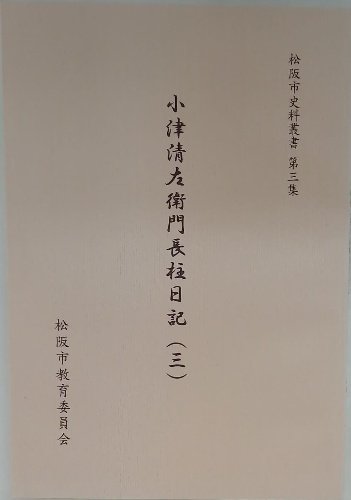 松阪市史料叢書 第三集
小津清左衛門長柱日記（三）
松阪市教育委員会